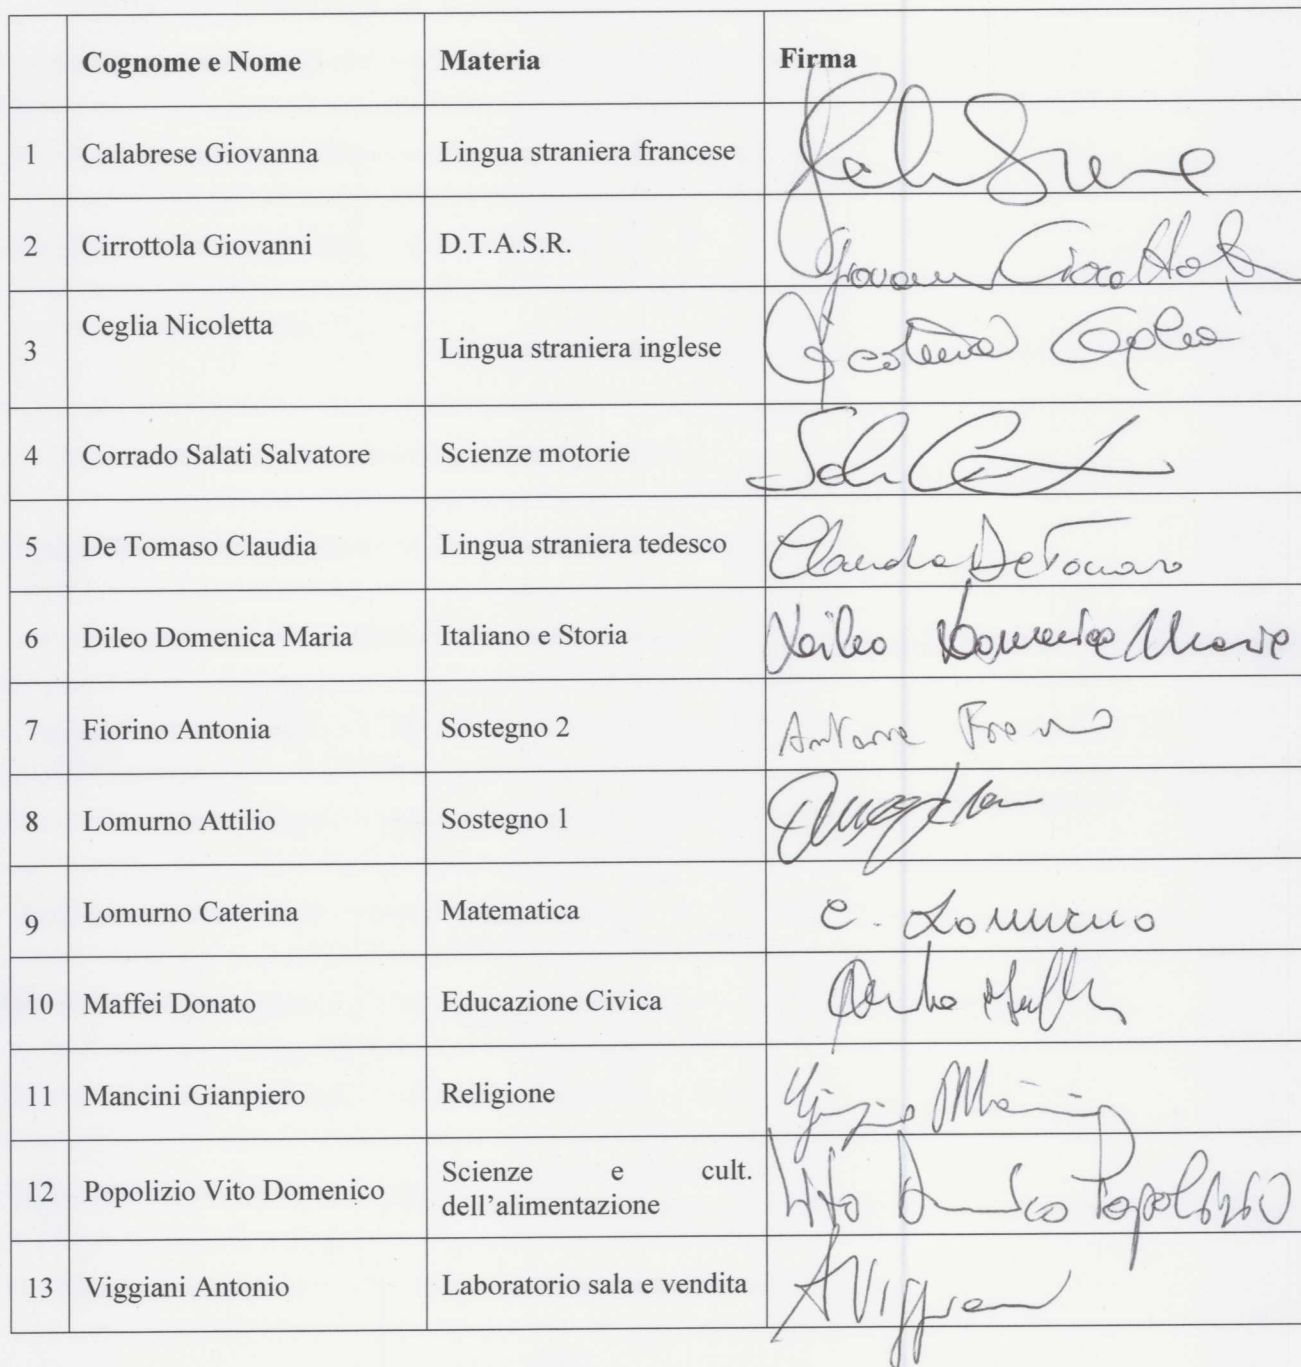 Cognome e Nome Materia Firma
1 Calabrese Giovanna Lingua straniera francese
2 Cirrottola Giovanni D.T.A.S.R.
3 Ceglia Nicoletta Lingua straniera inglese
4 Corrado Salati Salvatore Scienze motorie
5 De Tomaso Claudia Lingua straniera tedesco Claudia De Tomaso
6 Dileo Domenica Maria Italiano e Storia Dileo Domenica Maria
7 Fiorino Antonia Sostegno 2
8 Lomurno Attilio Sostegno 1
9 Lomurno Caterina Matematica C. Lomurno
10 Maffei Donato Educazione Civica
11 Mancini Gianpiero Religione
12 Popolizio Vito Domenico Scienze e cult.
dell’alimentazione Vito Domenico Popolizio
13 Viggiani Antonio Laboratorio sala e vendita A Viggiani